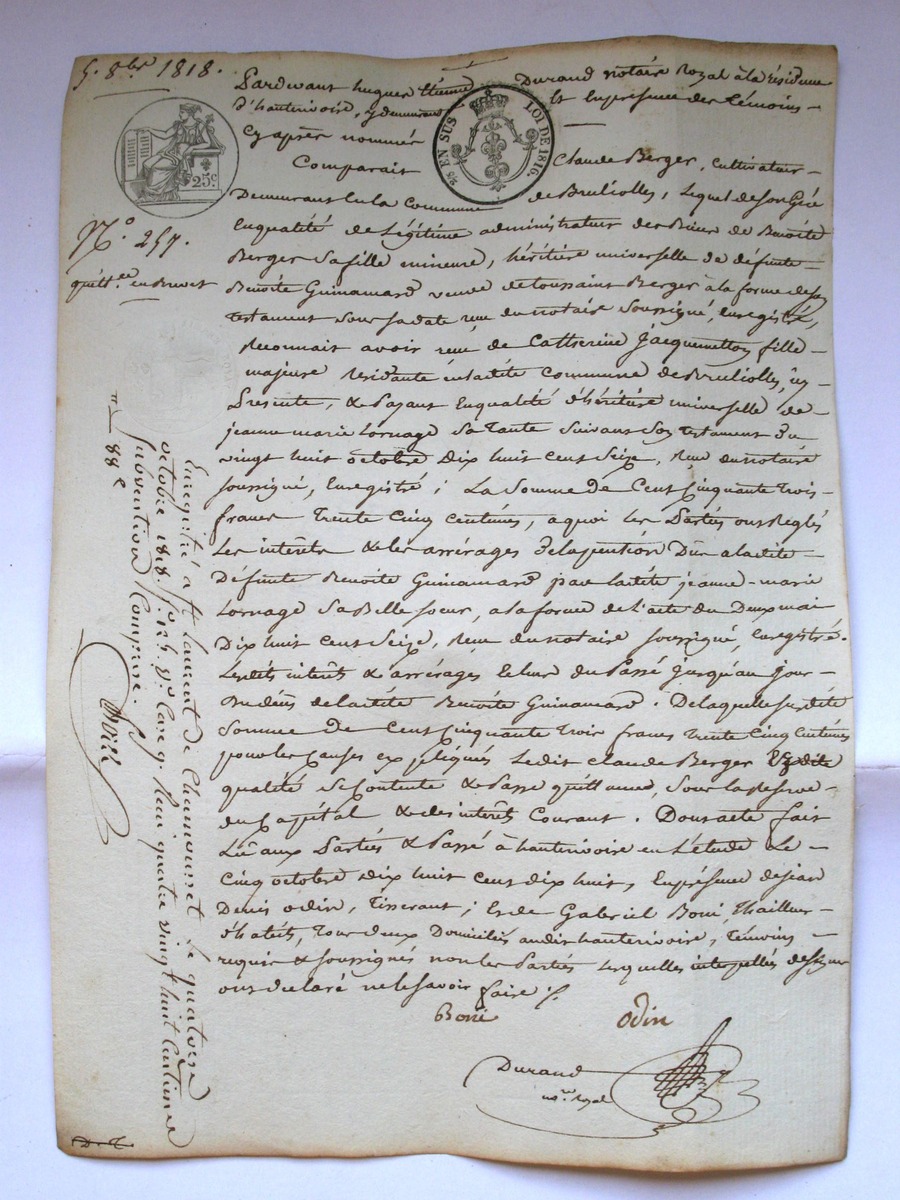 5. 8bre 1818.
Pardevant hugues Étienne Durand notaire Royal à la résidence
d'hauterivoire, y demeurant Et En présence des témoins
Cy après nommés
Comparait Claude Berger, cultivateur
Demeurant En la Commune de Bruliolles, Lequel de Son Gré
En qualité de Légitime administrateur des Biens de Benoite
Berger Sa fille mineure, héritière universelle de défunte
Benoite Guinamard veuve de toussaint Berger à la forme de son
testament Sous sa date reçu du notaire Soussigné, Enregistré,
Reconnait avoir reçu de Catherine Jacquemetton fille
majeure Residante en ladite Commune de Brulliolles, icy
Presente, & Payant En qualité d'héritière universelle de
jeanne marie Lornage Sa tante Suivant Son testament du
vingt huit octobre Dix huit cent Seize, Reçu du notaire
Soussigné, Enregistré; La Somme de Cent Cinquante trois
francs trente Cinq Centimes, a quoi les Parties ont Reglés
Les interets & les arrérages de la pension Due a ladite
Défunte Benoite Guinamard par ladite jeanne-marie
Lornage Sa Belle Soeur, a la forme de l'acte du Deux mai
Dix huit Cent Seize, Reçu du notaire Soussigné, Enregistré.
Lesdits interets & arrérages échus du Passé jusqu'au jour
Du déces de ladite Benoite Guinamard. De laquelle susdite
Somme de Cent Cinquante Trois francs trente Cinq Centimes
pour les Causes expliqués Ledit Claude Berger Esdite
qualité Se Contente & Passe quittance, Sous la Reserve
du Capital & des interets Courant. Dont acte fait
Lû aux Parties & Passé à hauterivoire en L'étude Le
Cinq octobre Dix huit Cent dix huit, En présence de jean
Denis odin, Tisserant; Et de Gabriel Boni, thailleur
d'habits, tous deux Domiciliés audit hauterivoire, témoins
requis & Soussignés non les Parties Lesquelles interpellés de signer
ont declaré ne le Savoir faire
Boni odin
Durand
nre royal
25 c
25 EN SUS LOI DE 1816.
N.o 257.
quittce en Brevet
Enregistré à St Laurent de Chamousset le quatorze
octobre 1818. fo Vo Case 9. Reçu quatre vingt huit Centimes
Subvention Comprise.
88 c